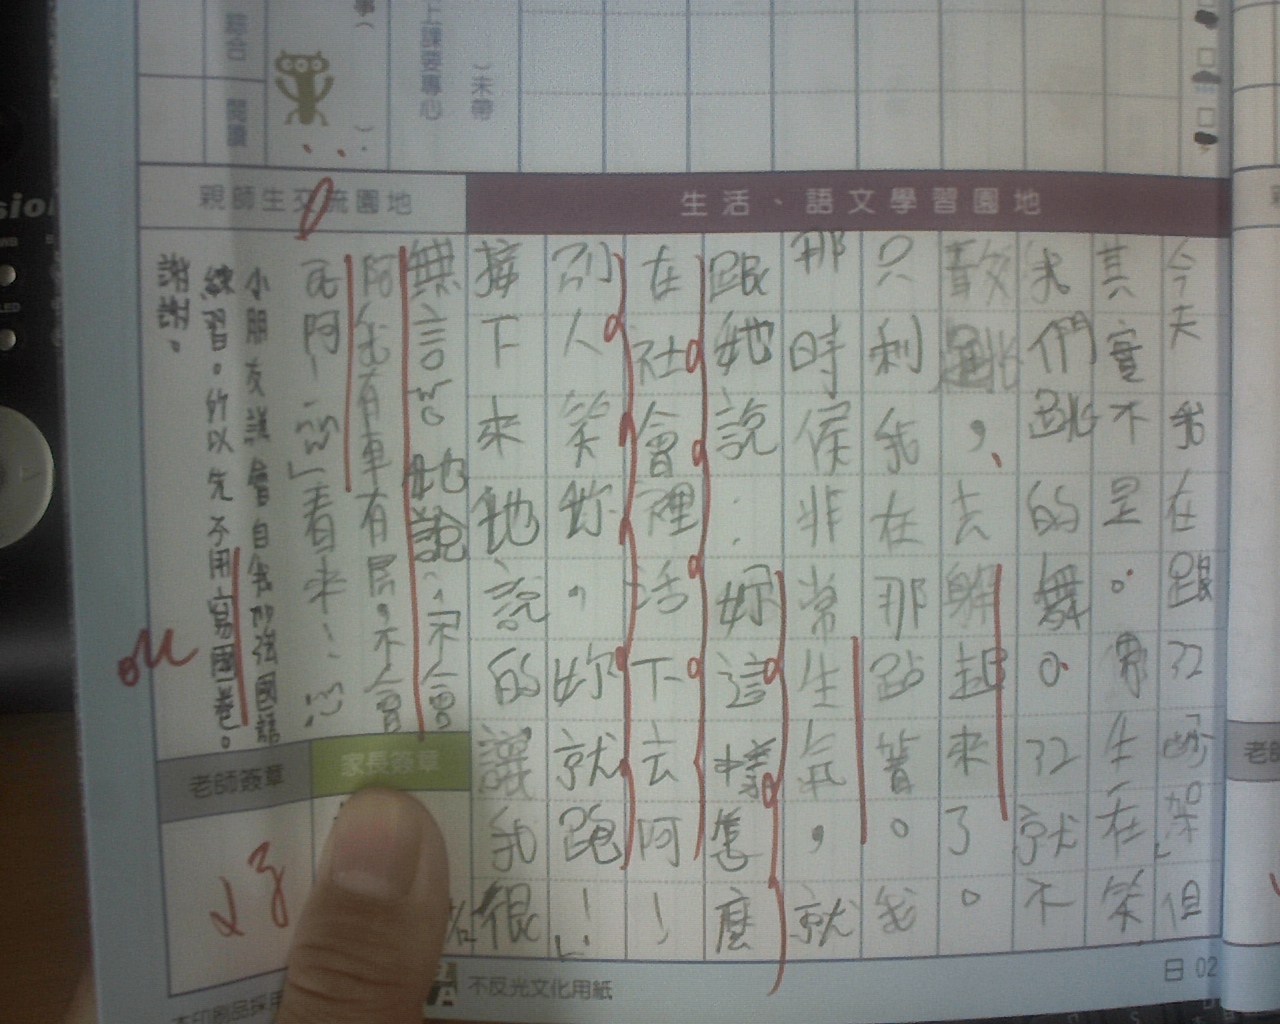 綜合
閱讀
上課要專心
(未帶
親師生交流園地
生活、語文學習園地
今天我在跟32「吵架」但
其實不是。男生在笑
我們跳的舞。32就不
敢跳,去躲起來了。
只剩我在那跕著。我
那時候非常生氣,就
跟她說:妳這樣怎麼
在社會裡活下去阿!
別人笑妳,妳就跑!」
接下來她說的讓我很
無言
她說:「不會
阿我有車有房,不會
死阿!」看來!
小朋友說會自我加強國語
練習。所以先不用寫國卷。
謝謝。
ok
老師簽章
家長簽章
日 02
不反光文化用紙
本印刷品採用